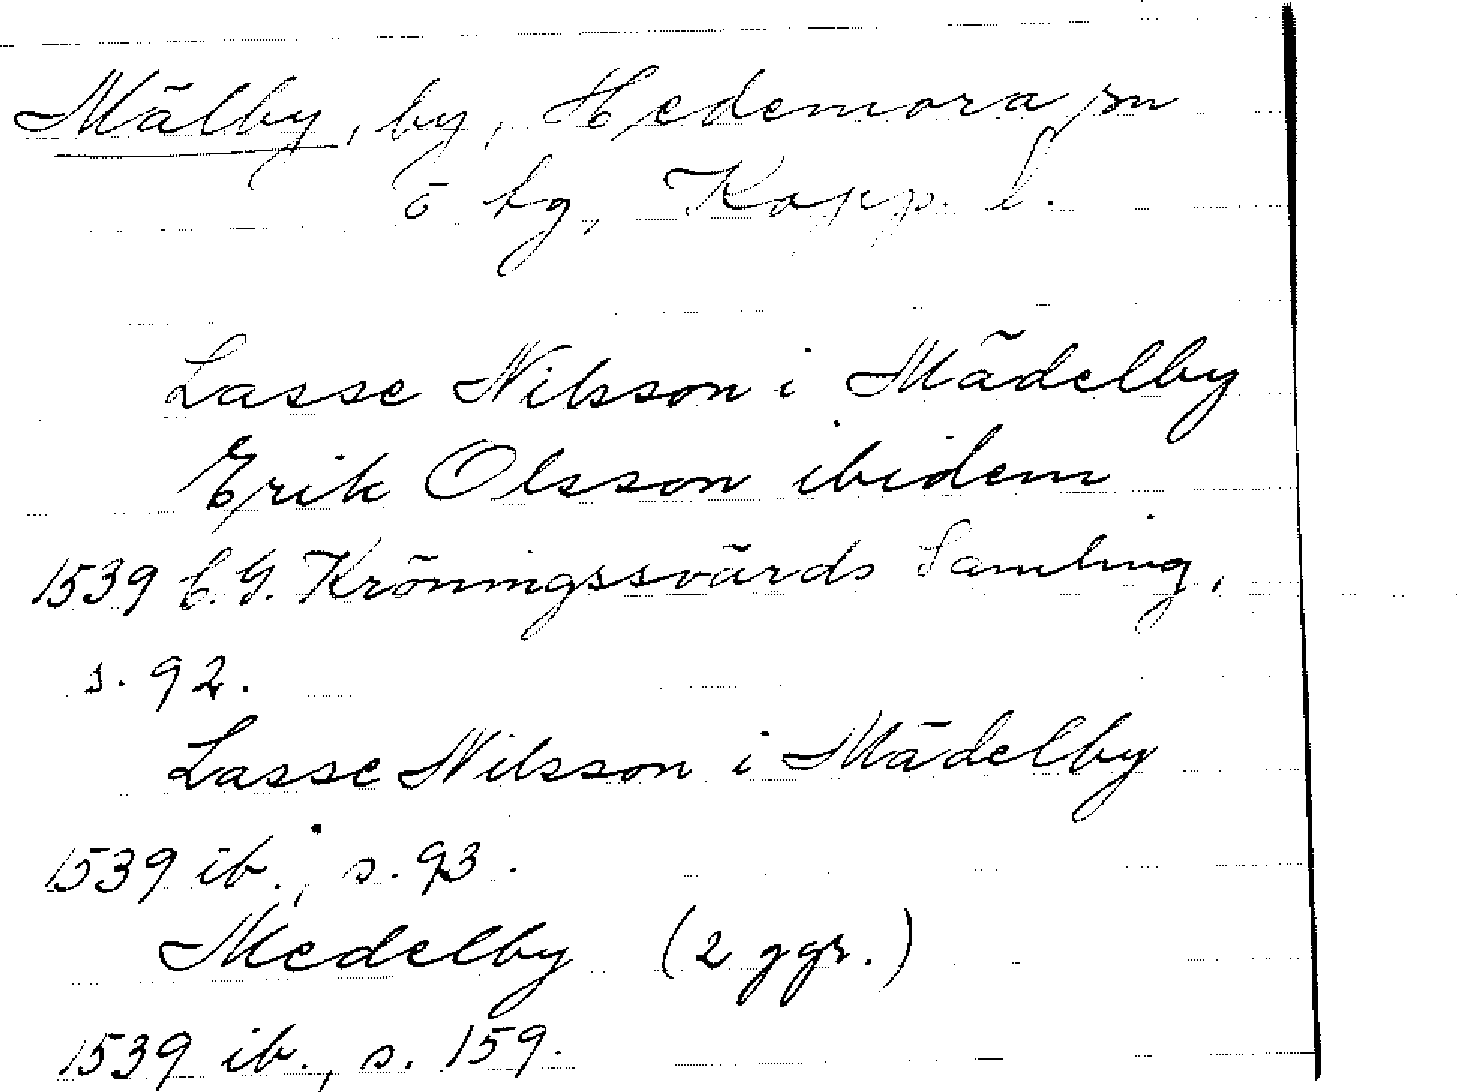 Mälby, by, Hedemora sn
o bg, Kopp. l.
Lasse Nilsson i Mädelby
Erik Olsson ibidem
1539 C.G. Kröningssvärds Samling,
s. 92.
Lasse Nilsson i Mädelby
1539 ib., s. 93.
Medelby (2 ggr.)
1539 ib., s. 159.